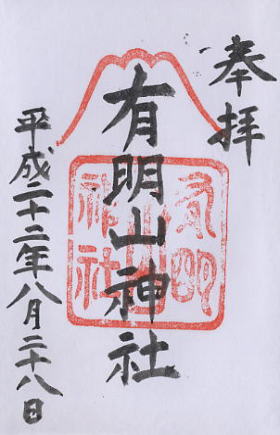 奉拝
有明山神社
有明山神社
平成二十二年八月二十八日